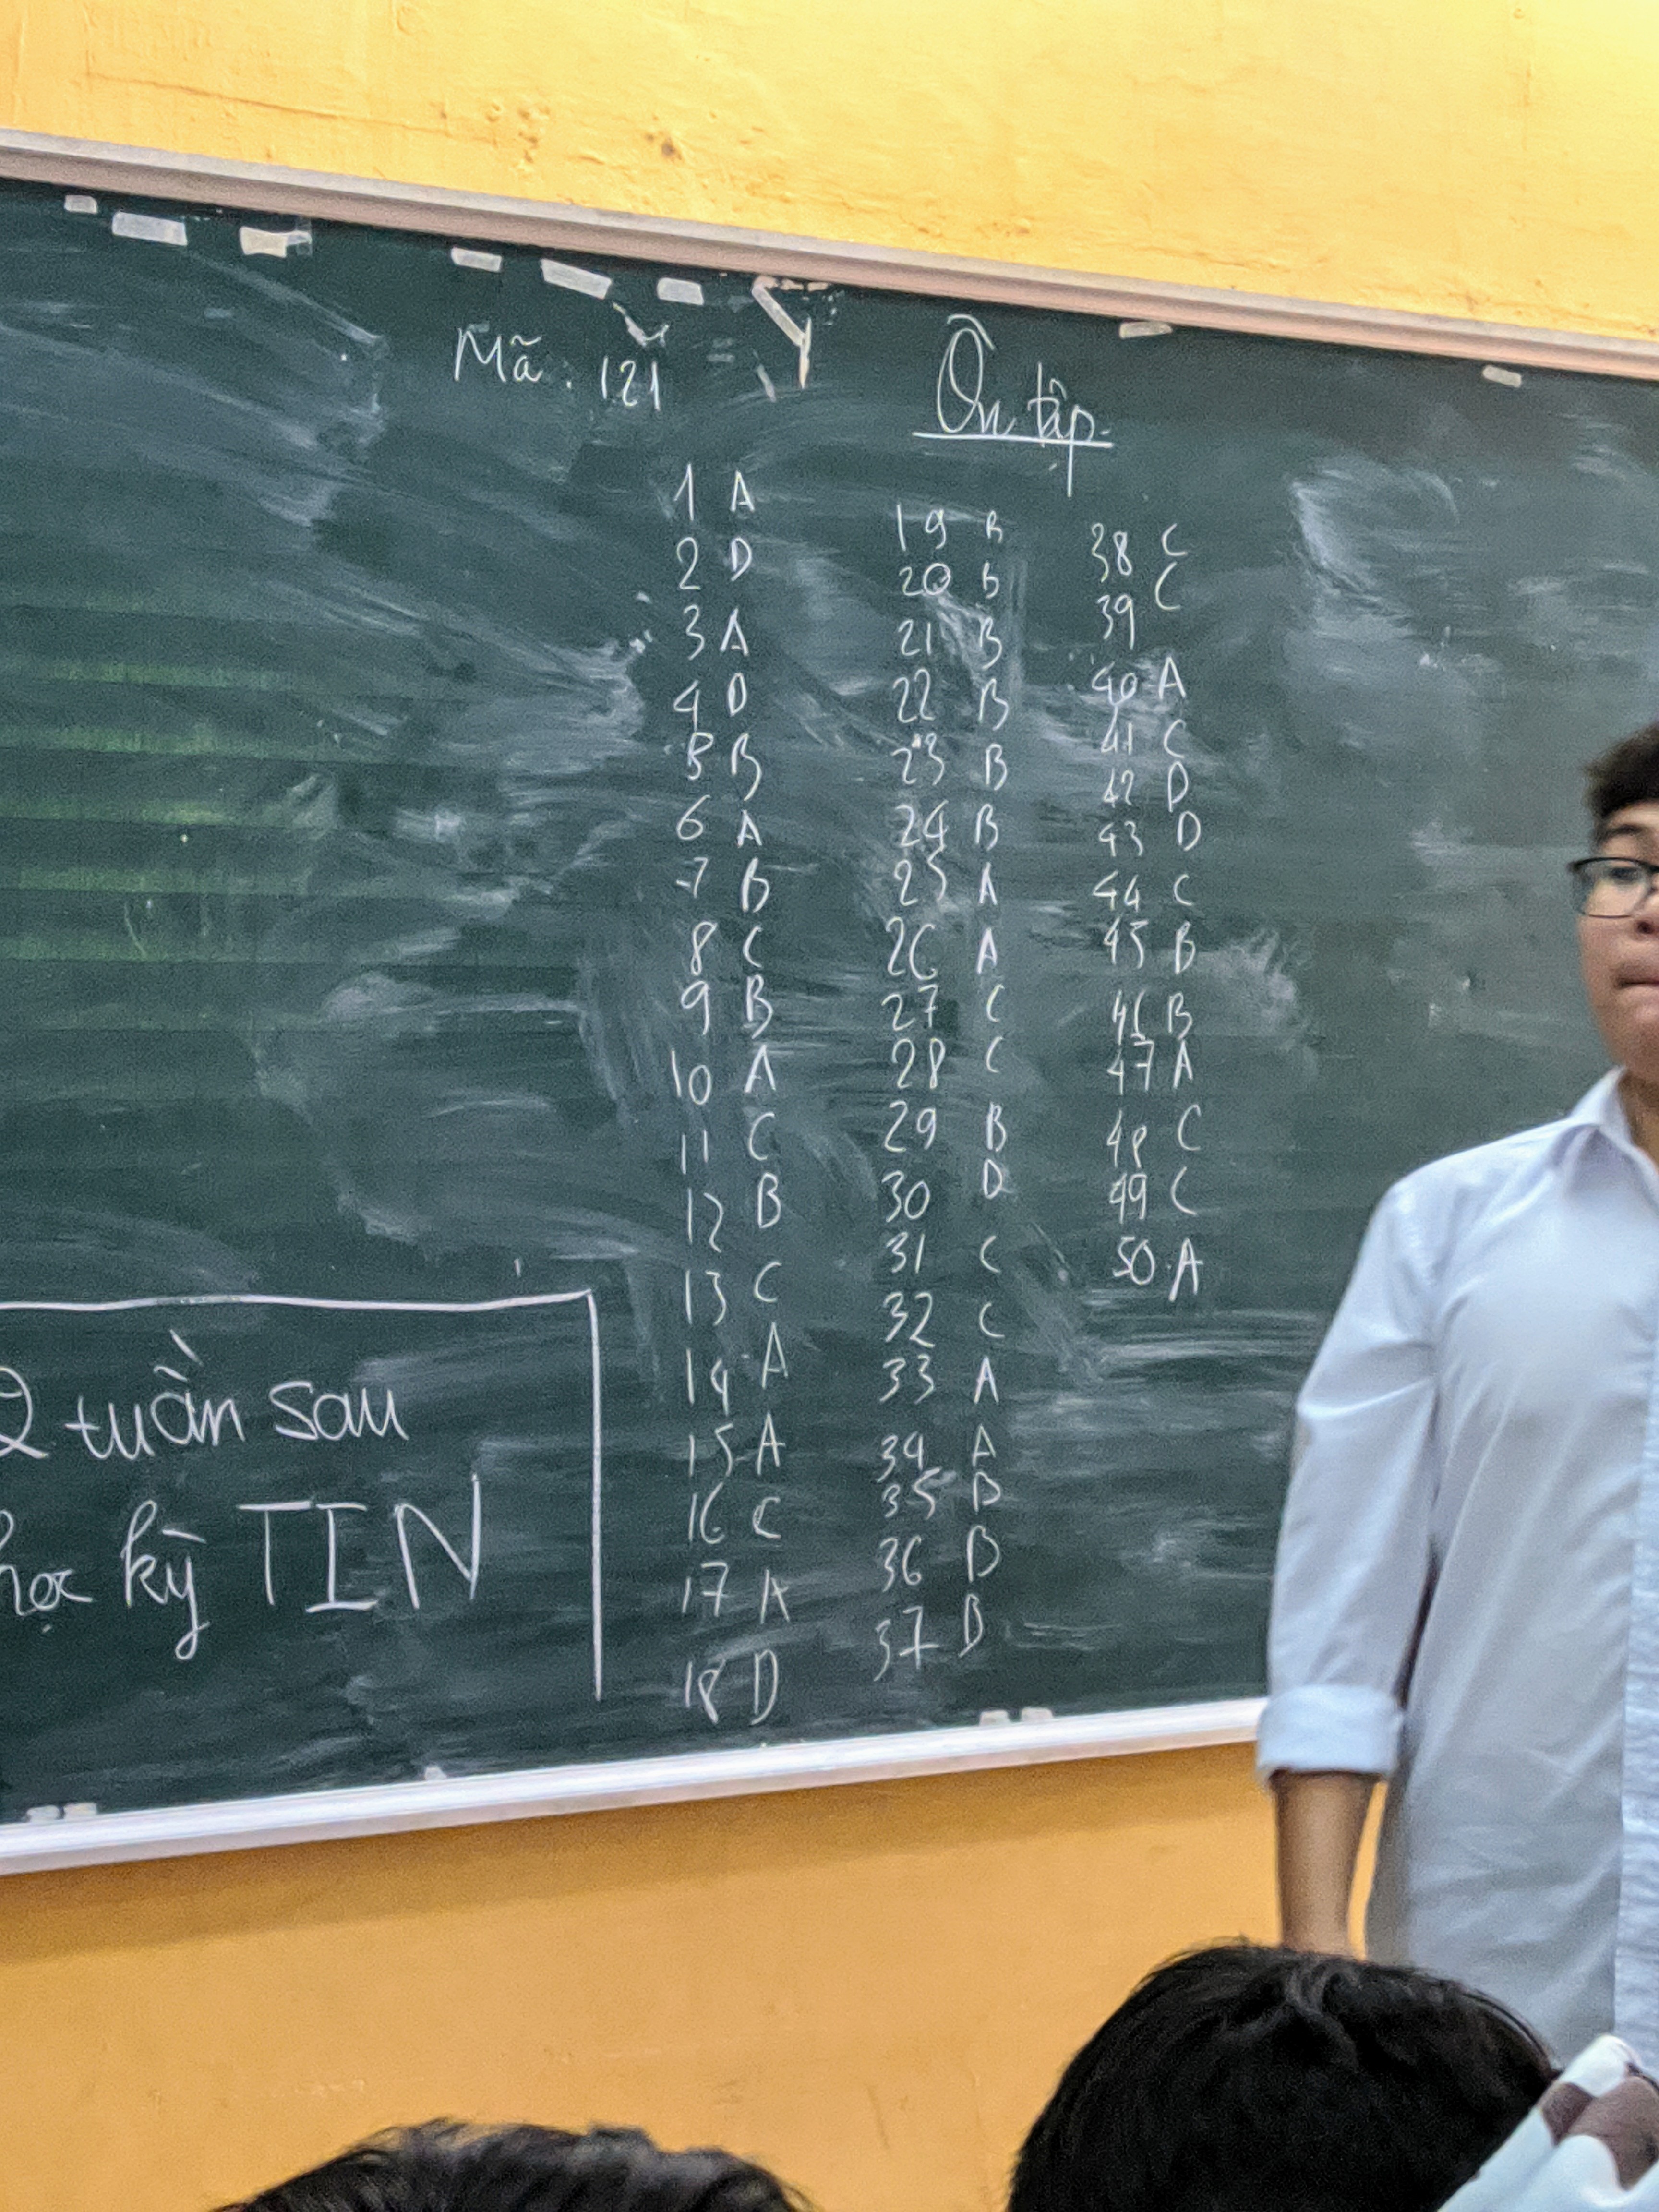 Mã: 121
Ôn tập
1 A
2 D
3 A
4 D
5 B
6 A
7 B
8 C
9 B
10 A
11 C
12 B
13 C
14 A
15 A
16 C
17 A
18 D
19 B
20 B
21 B
22 B
23 B
24 B
25 A
26 A
27 C
28 C
29 B
30 D
31 C
32 C
33 A
34 A
35 B
36 B
37 B
38 C
39 C
40 A
41 C
42 D
43 D
44 C
45 B
46 B
47 A
48 C
49 C
50 A
2 tuần sau
học kỳ TIN